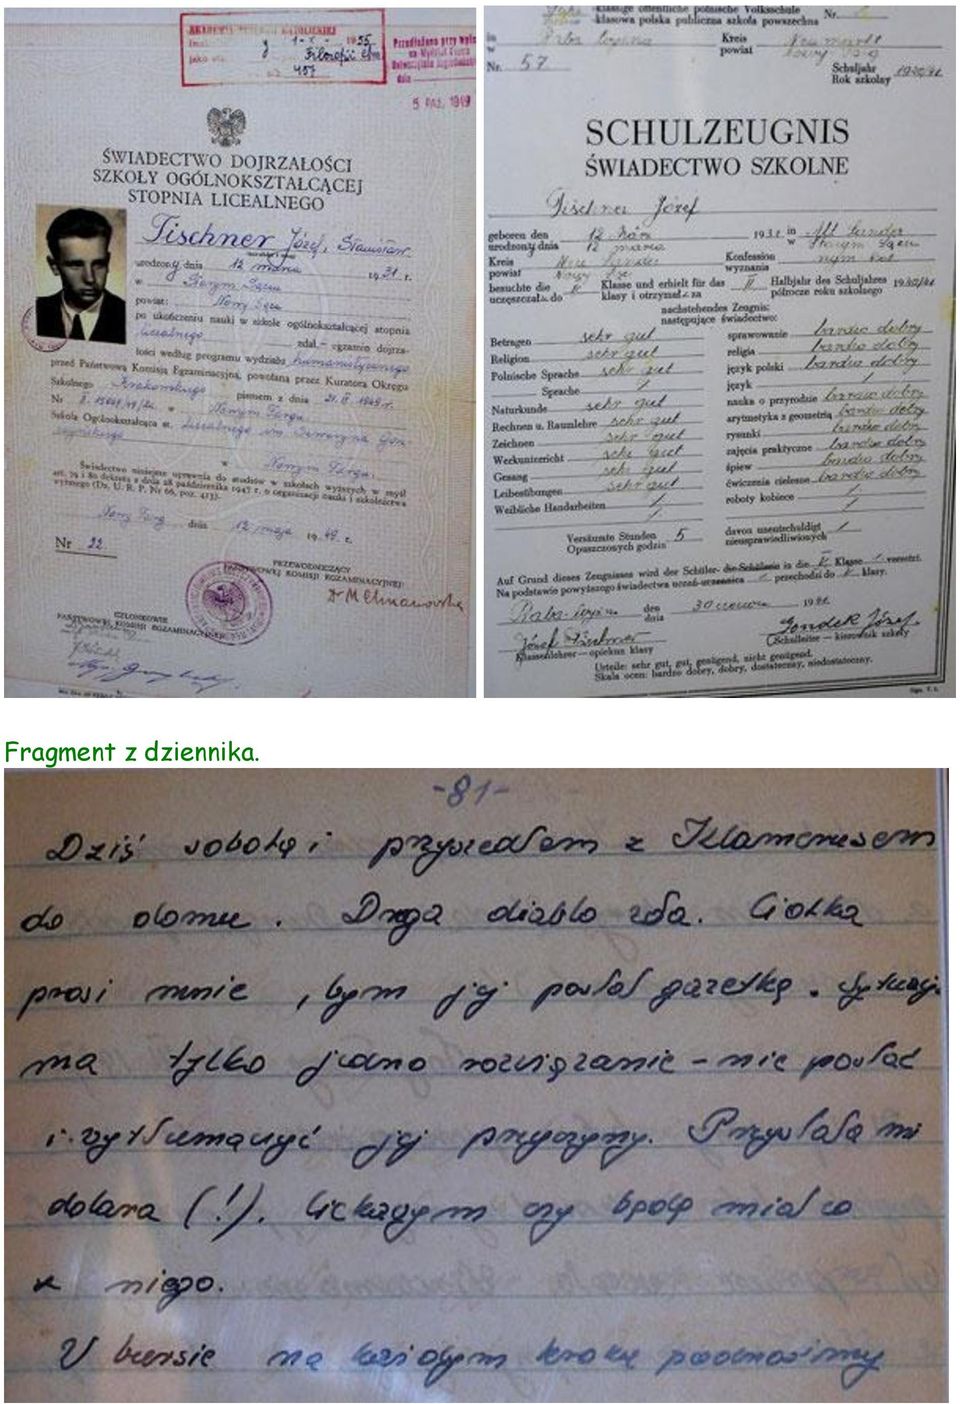 1955
Filozofię chrz
457
Przedłożono przy wpisie
na Wydział Prawa
Uniwersytetu Jagiellońskiego
dnia
5 PAŹ. 1949
ŚWIADECTWO DOJRZAŁOŚCI
SZKOŁY OGÓLNOKSZTAŁCĄCEJ
STOPNIA LICEALNEGO
Tischner Józef, Stanisław
urodzony dnia 12 marca 1931 r.
w Starym Sączu
powiat: Nowy Sącz
po ukończeniu nauki w szkole ogólnokształcącej stopnia
licealnego zdał egzamin dojrza-
łości według programu wydziału humanistycznego
przed Państwową Komisją Egzaminacyjną, powołaną przez Kuratora Okręgu
Szkolnego Krakowskiego pismem z dnia 21. II 1949 r.
Nr w Nowym Targu
Szkoła Ogólnokształcąca st. Licealnego im. Seweryna Gosz-
czyńskiego
w Nowym Targu
Świadectwo niniejsze uprawnia do studiów w szkołach wyższych w myśl
art. 79 i 80 dekretu z dnia 28 października 1947 r. o organizacji nauki i szkolnictwa
wyższego (Dz. U. R. P. Nr 66, poz. 413).
Nowy Targ dnia 12 maja 1949 r.
Nr 22
PRZEWODNICZĄCY
PAŃSTWOWEJ KOMISJI EGZAMINACYJNEJ
CZŁONKOWIE
PAŃSTWOWEJ KOMISJI EGZAMINACYJNEJ
klassige öffentliche polnische Volksschule Nr.
klasowa polska publiczna szkoła powszechna
in
w Raba Wyżna Kreis Neumarkt
powiat Nowy Targ
Nr. 57 Schuljahr
Rok szkolny 1940/41
SCHULZEUGNIS
ŚWIADECTWO SZKOLNE
Tischner Józef
geboren den 12 März 1931 in Alt Sandez
urodzony dnia 12 marca w Starym Sączu
Kreis Neu Sandez Konfession
powiat Nowy Sącz wyznania rzym kat
besuchte die II Klasse und erhielt für das II Halbjahr des Schuljahres 1940/41
uczęszczał do klasy i otrzymał za półrocze roku szkolnego
nachstehendes Zeugnis:
następujące świadectwo:
Betragen sehr gut sprawowanie bardzo dobry
Religion sehr gut religia bardzo dobry
Polnische Sprache sehr gut język polski bardzo dobry
Sprache język
Naturkunde sehr gut nauka o przyrodzie bardzo dobry
Rechnen u. Raumlehre sehr gut arytmetyka z geometrią bardzo dobry
Zeichnen sehr gut rysunki bardzo dobry
Werkunterricht sehr gut zajęcia praktyczne bardzo dobry
Gesang sehr gut śpiew bardzo dobry
Leibesübungen sehr gut ćwiczenia cielesne bardzo dobry
Weibliche Handarbeiten roboty kobiece
Versäumte Stunden 5 davon unentschuldigt
Opuszczonych godzin nieusprawiedliwionych
Auf Grund dieses Zeugnisses wird der Schüler- die Schülerin in die V Klasse versetzt.
Na podstawie powyższego świadectwa uczeń-uczennica przechodzi do V klasy.
Raba-Wyżna den
dnia 30 czerwca 1941
Józef Tischner Gondek Józef
Klassenlehrer — opiekun klasy Schulleiter — kierownik szkoły
Urteile: sehr gut, gut, genügend, nicht genügend.
Skala ocen: bardzo dobry, dobry, dostateczny, niedostateczny.
Fragment z dziennika.
-81-
Dziś sobota i przyszedłem z Klamerusem
do domu. Droga diablo zła. Ciotka
prosi mnie, bym jej posłał gazetkę. Sytuacja
ma tylko jedno rozwiązanie - nie posłać
i wytłumaczyć jej przyczyny. Przysłała mi
dolara (!). Ciekawym czy będę miał co
z niego.
W bursie na każdym kroku podnosimy